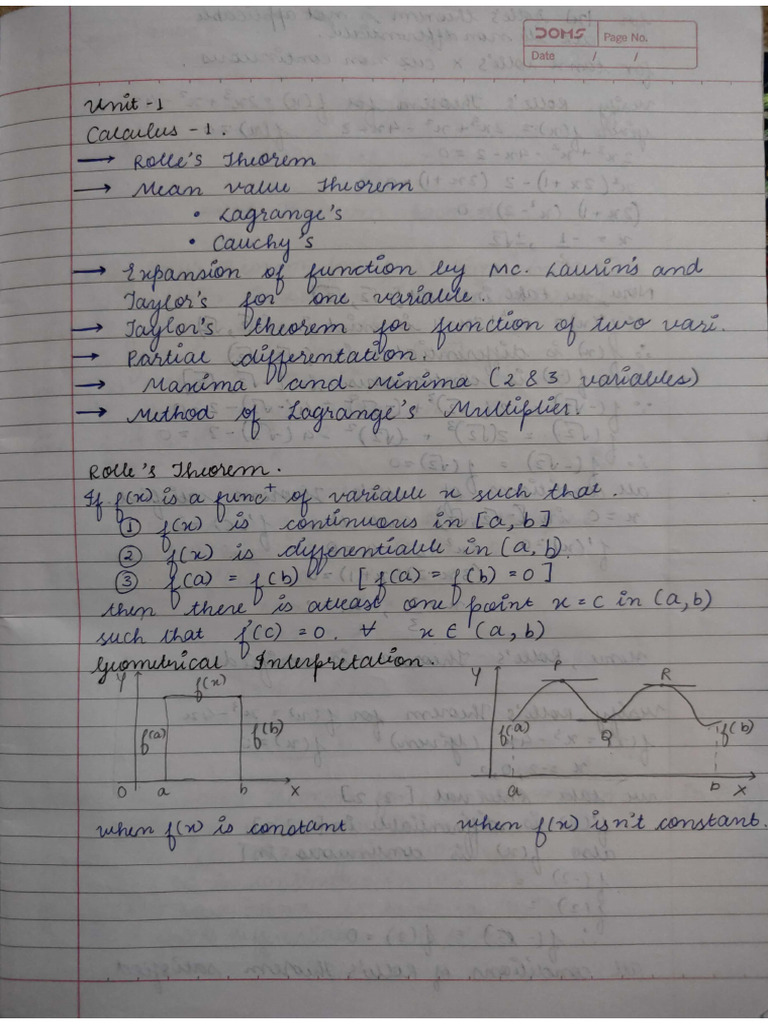 DOMS
Page No.
Date / /
Unit-1
Calculus-1.
→ Rolle's Theorem
→ Mean value Theorem
• Lagrange's
• Cauchy's
→ Expansion of function by Mc. Laurin's and
Taylor's for one variable.
→ Taylor's theorem for function of two vari.
→ Partial differentation.
→ Maxima and Minima (2 & 3 variables)
→ Method of Lagrange's Multiplier.
Rolle's Theorem.
If f(x) is a func⁺ of variable x such that.
① f(x) is continuous in [a, b]
② f(x) is differentiable in (a, b).
③ f(a) = f(b) [f(a) = f(b) = 0]
then there is atleast, one point x = c in (a, b)
such that f'(c) = 0. ∀ x ∈ (a, b)
Geometrical Interpretation.
Y f(x) f(a) f(b) O a b X
Y P R f(a) Q f(b) a b X
when f(x) is constant when f(x) isn't constant.